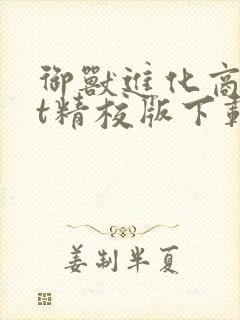 御獸進化商
t精校版下載
姜制半夏